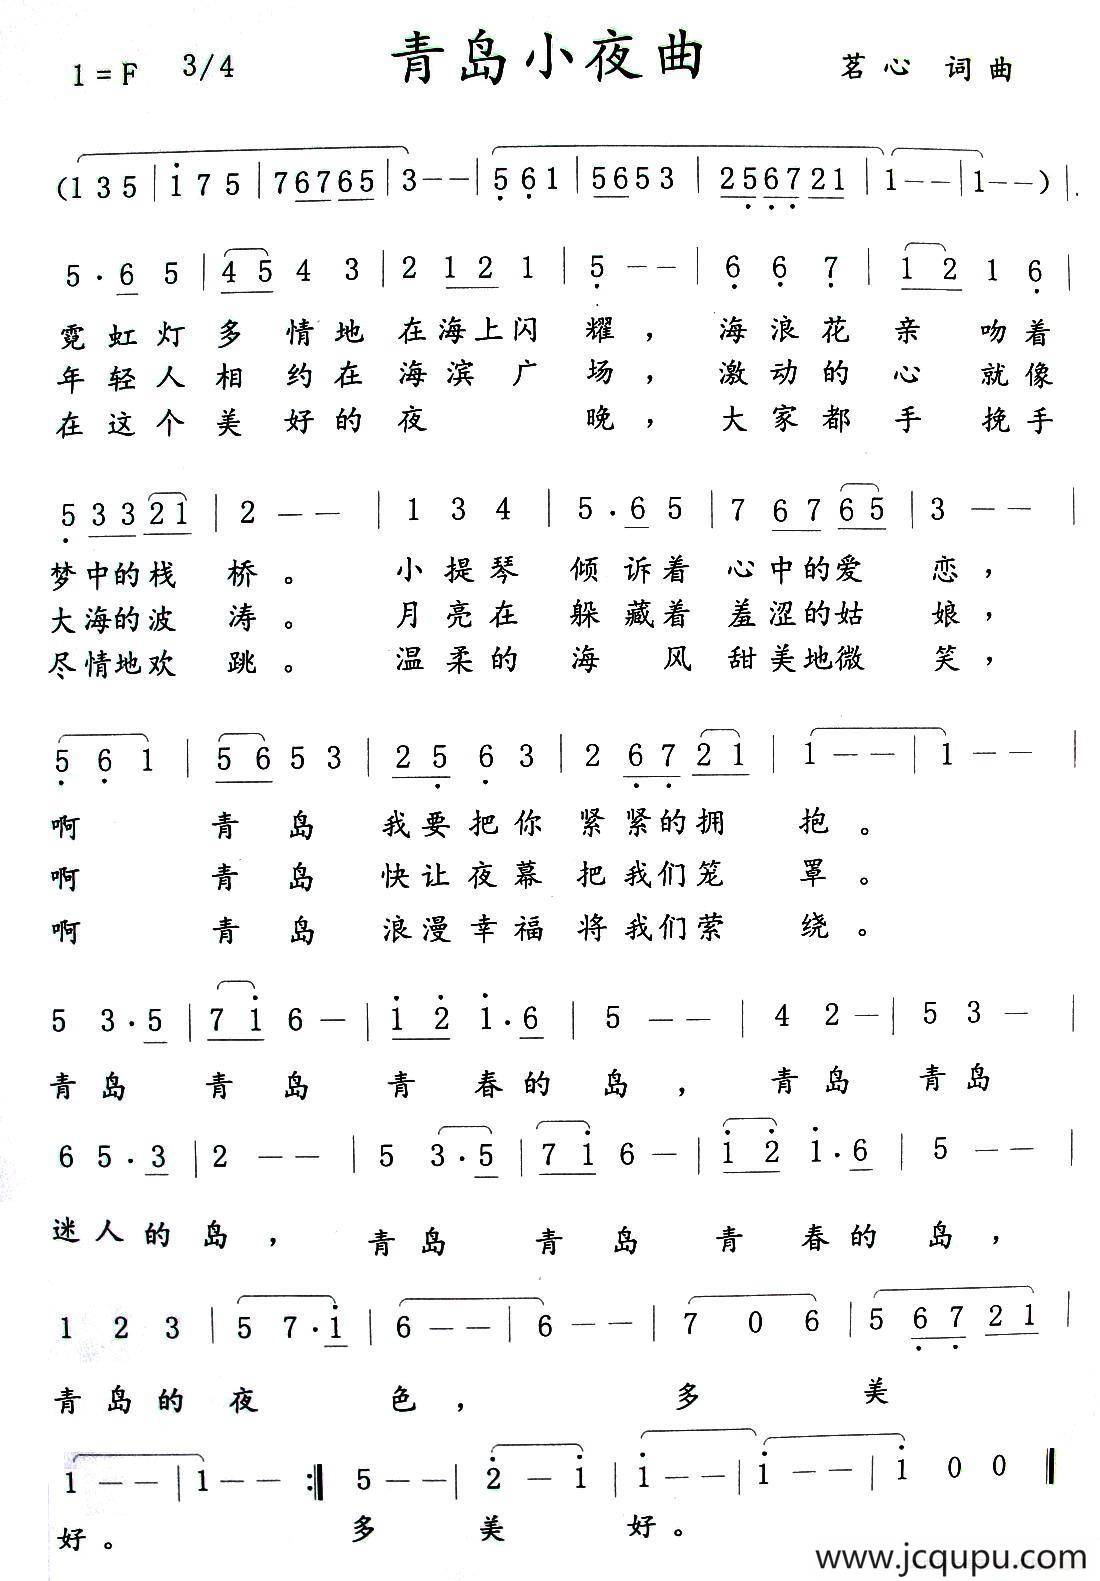 青岛小夜曲
1=F 3/4 茗心 词曲
(135|i75|76765|3--|561|5653|256721|1--|1--)|.
5·65|45 43|2121|5--|667|1216|
霓虹灯多情地在海上闪耀，海浪花亲吻着
年轻人相约在海滨广场，激动的心就像
在这个美好的夜晚，大家都手挽手
53321|2--|134|5·65|76765|3--|
梦中的栈桥。小提琴倾诉着心中的爱恋，
大海的波涛。月亮在躲藏着羞涩的姑娘，
尽情地欢跳。温柔的海风甜美地微笑，
561|5653|2563|26721|1--|1--|
啊青岛我要把你紧紧的拥抱。
啊青岛快让夜幕把我们笼罩。
啊青岛浪漫幸福将我们萦绕。
53·5|7i6-|i2i·6|5--|42-|53-|
青岛青岛青春的岛，青岛青岛
65·3|2--|53·5|7i6-|i2i·6|5--|
迷人的岛，青岛青岛青春的岛，
123|57·i|6--|6--|706|56721|
青岛的夜色，多美
1--|1--:||5--|2-i|i--|i--|i00||
好。多美好。
www.jcqupu.com